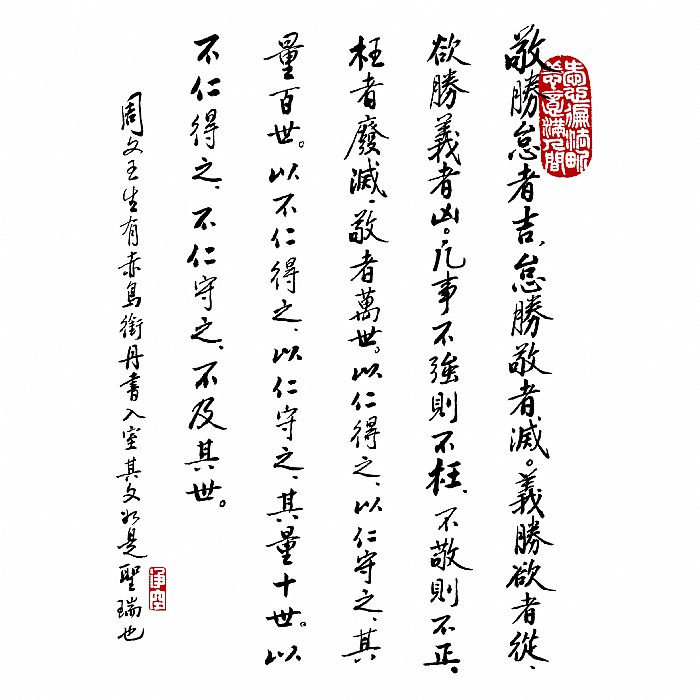 敬勝怠者吉、怠勝敬者滅。義勝欲者從、
欲勝義者凶。凡事不強則不枉、不敬則不正、
枉者廢滅、敬者萬世。以仁得之、以仁守之、其
量百世。以不仁得之、以仁守之、其量十世。以
不仁得之、不仁守之、不及其世。
周文王生有赤鳥銜丹書入室其文如是聖瑞也